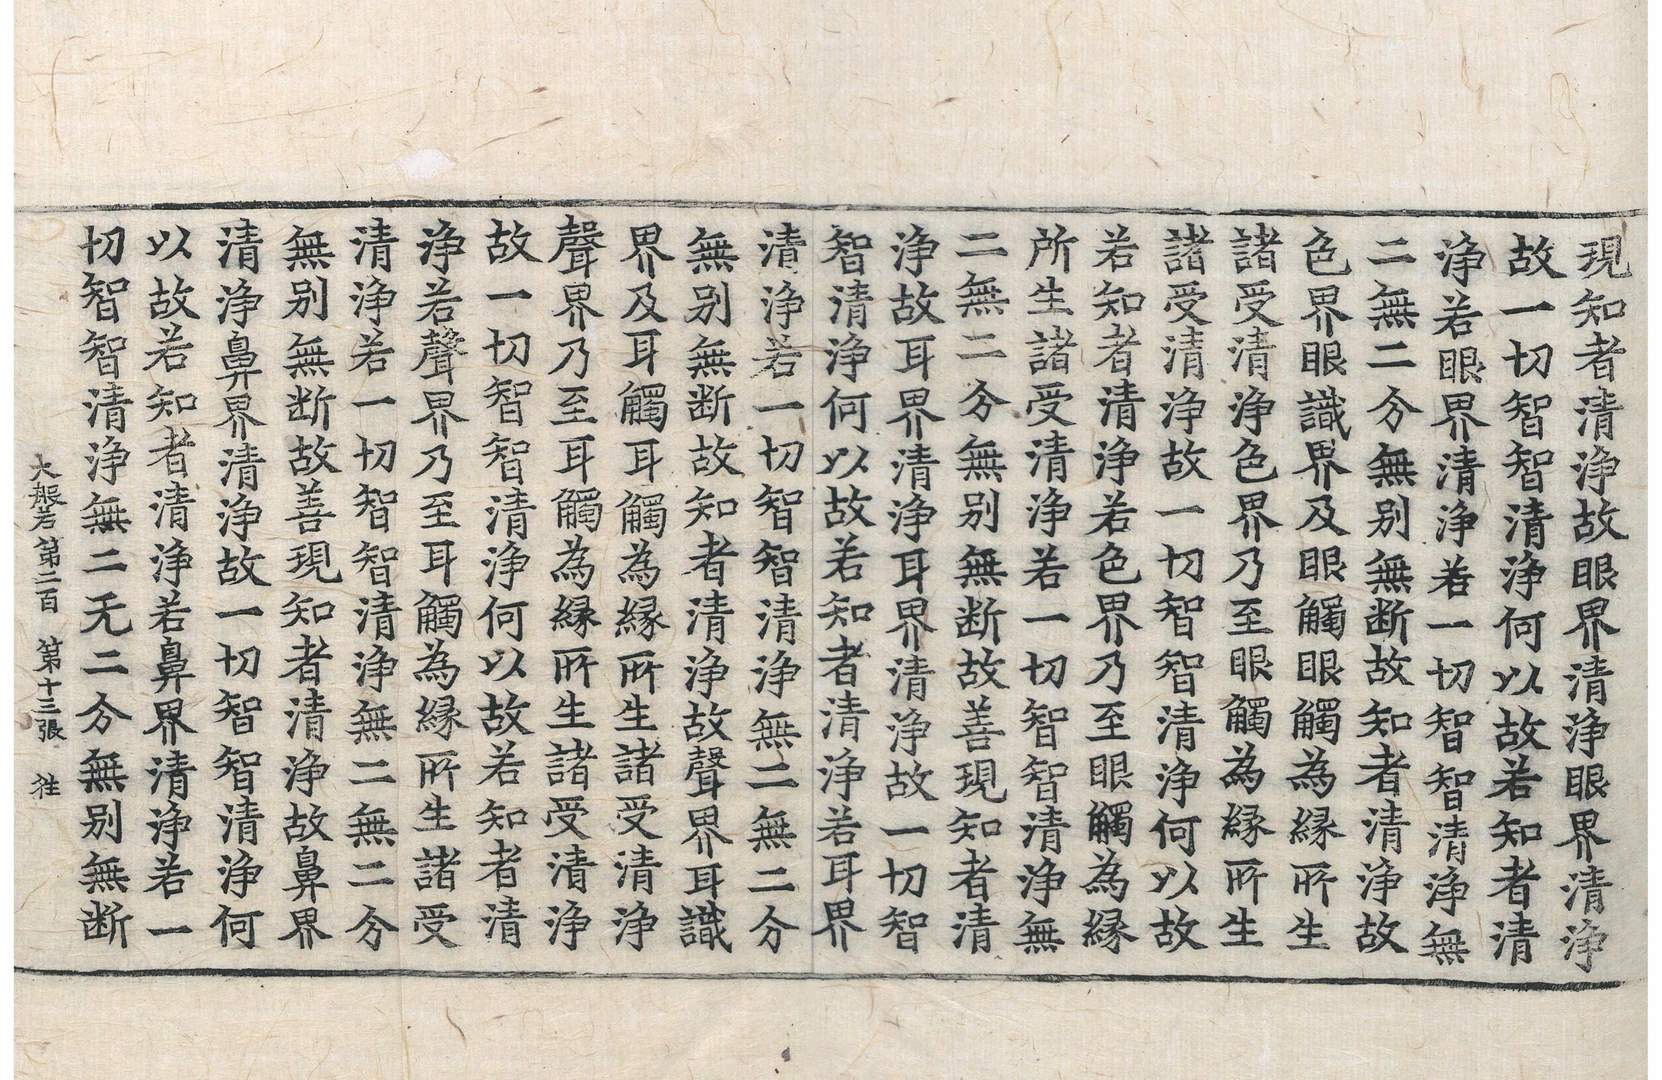 現知者清浄故眼界清浄眼界清浄
故一切智智清浄何以故若知者清
浄若眼界清浄若一切智智清浄無
二無二分無别無断故知者清浄故
色界眼識界及眼觸眼觸為縁所生
諸受清浄色界乃至眼觸為縁所生
諸受清浄故一切智智清浄何以故
若知者清浄若色界乃至眼觸為縁
所生諸受清浄若一切智智清浄無
二無二分無别無断故善現知者清
浄故耳界清浄耳界清浄故一切智
智清浄何以故若知者清浄若耳界
清浄若一切智智清浄無二無二分
無别無断故知者清浄故聲界耳識
界及耳觸耳觸為縁所生諸受清浄
聲界乃至耳觸為縁所生諸受清浄
故一切智智清浄何以故若知者清
浄若聲界乃至耳觸為縁所生諸受
清浄若一切智智清浄無二無二分
無别無断故善現知者清浄故鼻界
清浄鼻界清浄故一切智智清浄何
以故若知者清浄若鼻界清浄若一
切智智清浄無二无二分無别無断
大般若第二百 第十三張